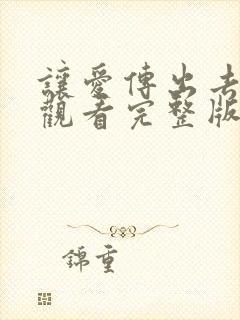 讓愛傳出去
觀看完整版
錦重